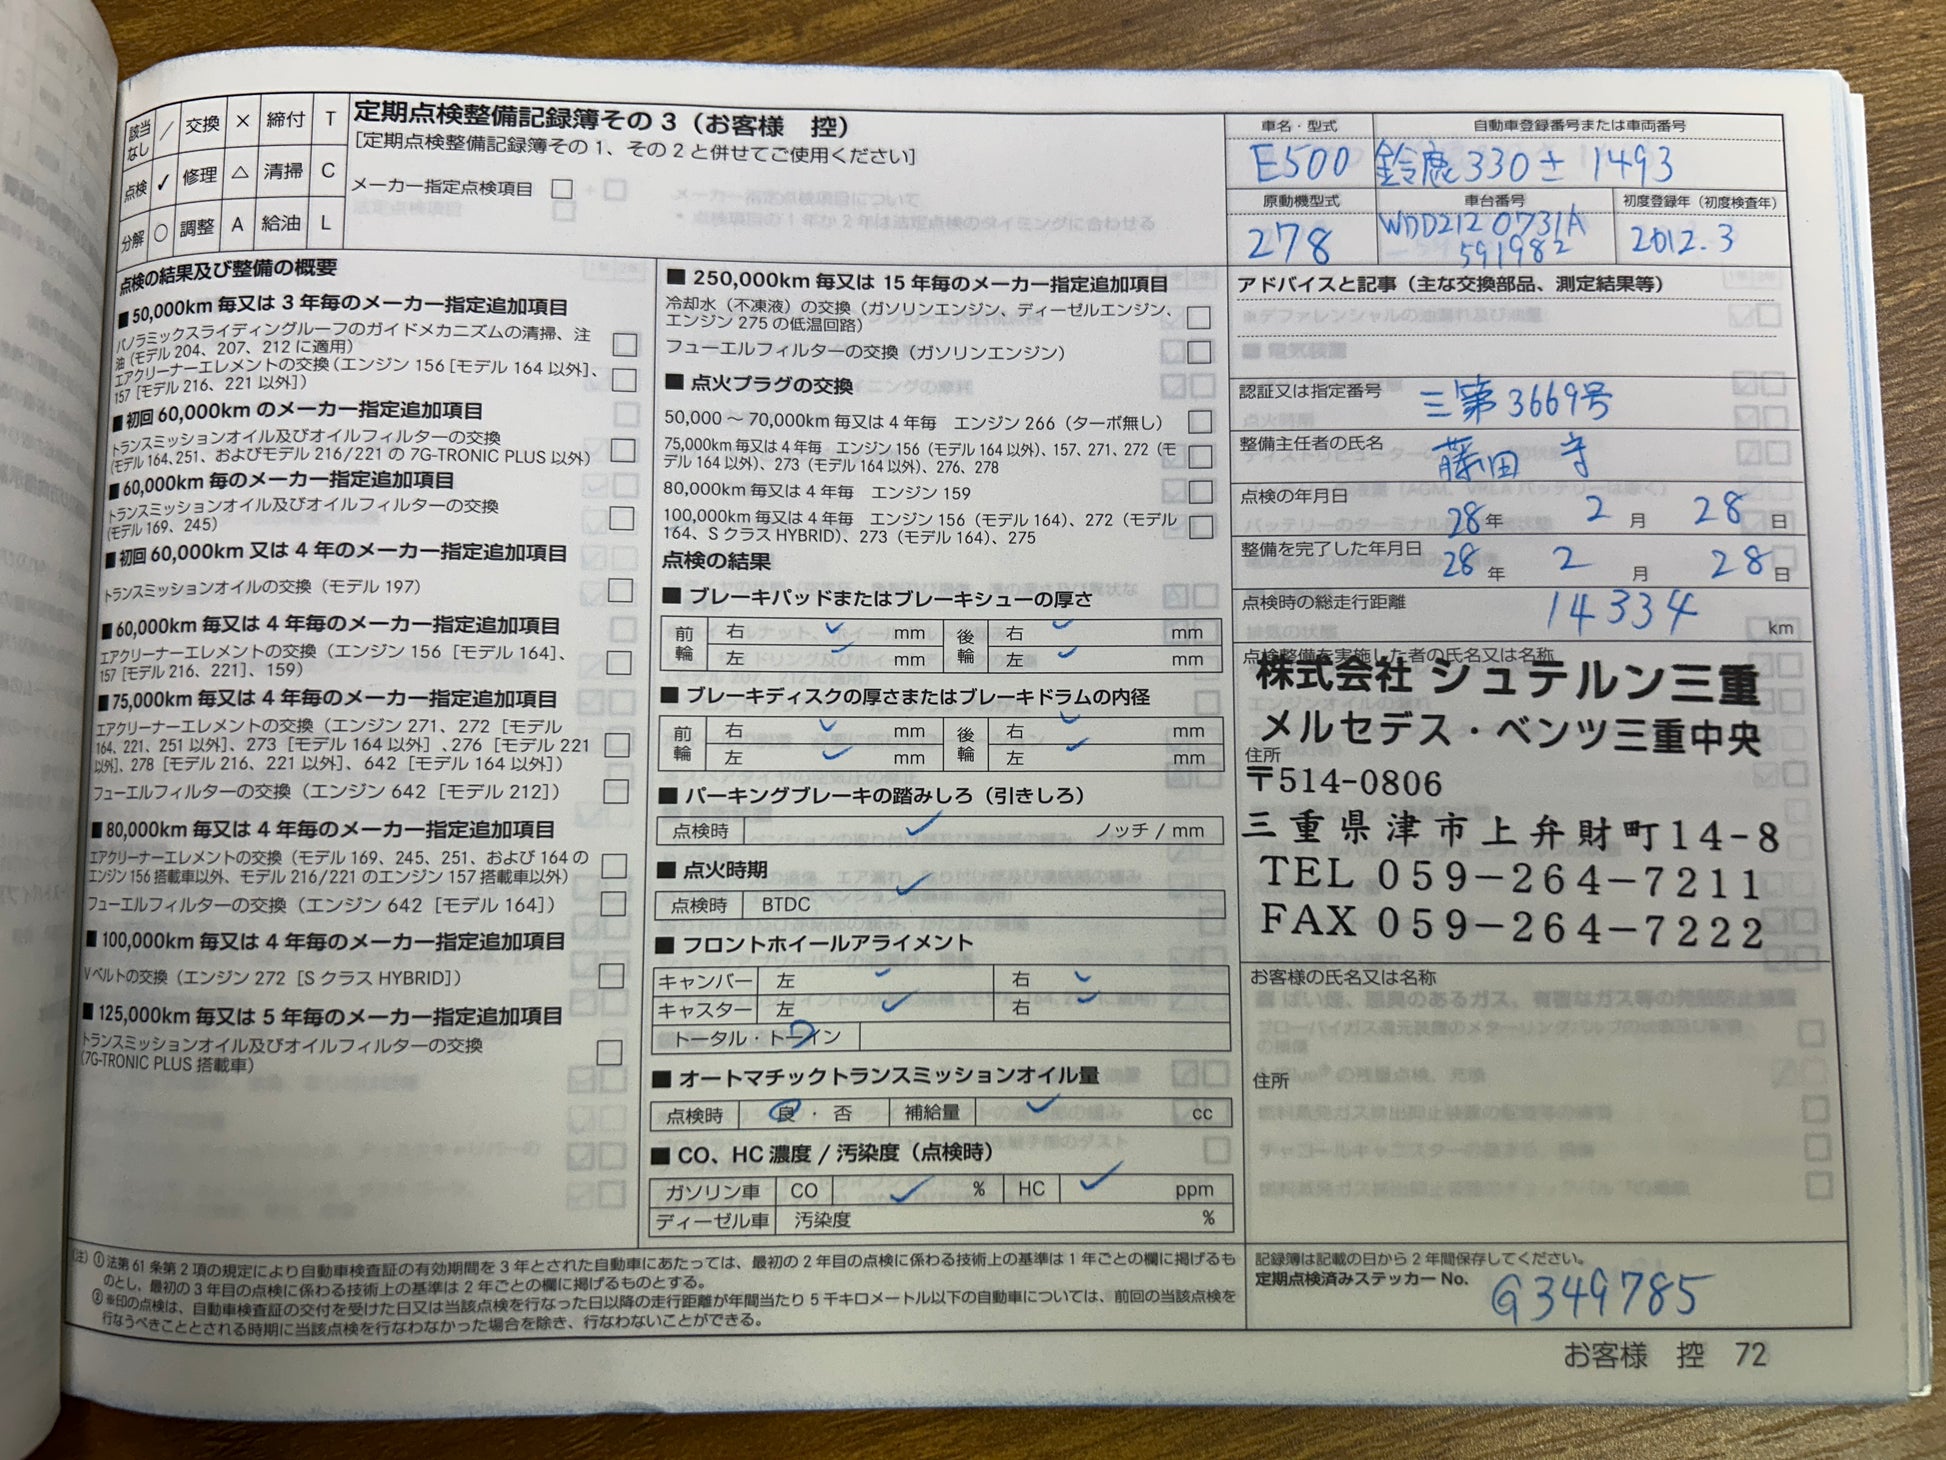 該当なし ／ 交換 × 締付 T
点検 ✓ 修理 △ 清掃 C
分解 ○ 調整 A 給油 L
定期点検整備記録簿その3（お客様 控）
［定期点検整備記録簿その1、その2と併せてご使用ください］
メーカー指定点検項目 □
車名・型式
E500
自動車登録番号または車両番号
鈴鹿330 1493
原動機型式
278
車台番号
WDD2120731A
591982
初度登録年（初度検査年）
2012.3
点検の結果及び整備の概要
■50,000km毎又は3年毎のメーカー指定追加項目
パノラミックスライディングルーフのガイドメカニズムの清掃、注
油（モデル204、207、212に適用）
エアクリーナーエレメントの交換（エンジン156［モデル164以外］、
157［モデル216、221以外］）
■初回60,000kmのメーカー指定追加項目
トランスミッションオイル及びオイルフィルターの交換
（モデル164、251、およびモデル216/221の7G-TRONIC PLUS以外）
■60,000km毎のメーカー指定追加項目
トランスミッションオイル及びオイルフィルターの交換
（モデル169、245）
■初回60,000km又は4年のメーカー指定追加項目
トランスミッションオイルの交換（モデル197）
■60,000km毎又は4年毎のメーカー指定追加項目
エアクリーナーエレメントの交換（エンジン156［モデル164］、
157［モデル216、221］、159）
■75,000km毎又は4年毎のメーカー指定追加項目
エアクリーナーエレメントの交換（エンジン271、272［モデル
164、221、251以外］、273［モデル164以外］、276［モデル221
以外］、278［モデル216、221以外］、642［モデル164以外］）
フューエルフィルターの交換（エンジン642［モデル212］）
■80,000km毎又は4年毎のメーカー指定追加項目
エアクリーナーエレメントの交換（モデル169、245、251、および164の
エンジン156搭載車以外、モデル216/221のエンジン157搭載車以外）
フューエルフィルターの交換（エンジン642［モデル164］）
■100,000km毎又は4年毎のメーカー指定追加項目
Vベルトの交換（エンジン272［SクラスHYBRID］）
■125,000km毎又は5年毎のメーカー指定追加項目
トランスミッションオイル及びオイルフィルターの交換
（7G-TRONIC PLUS搭載車）
■250,000km毎又は15年毎のメーカー指定追加項目
冷却水（不凍液）の交換（ガソリンエンジン、ディーゼルエンジン、
エンジン275の低温回路）
フューエルフィルターの交換（ガソリンエンジン）
■点火プラグの交換
50,000～70,000km毎又は4年毎 エンジン266（ターボ無し）
75,000km毎又は4年毎 エンジン156（モデル164以外）、157、271、272（モ
デル164以外）、273（モデル164以外）、276、278
80,000km毎又は4年毎 エンジン159
100,000km毎又は4年毎 エンジン156（モデル164）、272（モデル
164、SクラスHYBRID）、273（モデル164）、275
点検の結果
■ブレーキパッドまたはブレーキシューの厚さ
前輪 右 ✓ mm 後輪 右 ✓ mm
左 ✓ mm 左 ✓ mm
■ブレーキディスクの厚さまたはブレーキドラムの内径
前輪 右 ✓ mm 後輪 右 ✓ mm
左 ✓ mm 左 ✓ mm
■パーキングブレーキの踏みしろ（引きしろ）
点検時 ✓ ノッチ/mm
■点火時期
点検時 BTDC ✓
■フロントホイールアライメント
キャンバー 左 ✓ 右 ✓
キャスター 左 ✓ 右 ✓
トータル・トーイン
■オートマチックトランスミッションオイル量
点検時 良・否 補給量 ✓ cc
■CO、HC濃度/汚染度（点検時）
ガソリン車 CO ✓ % HC ✓ ppm
ディーゼル車 汚染度 %
アドバイスと記事（主な交換部品、測定結果等）
認証又は指定番号 三第3669号
整備主任者の氏名 藤田 守
点検の年月日 28年 2月 28日
整備を完了した年月日 28年 2月 28日
点検時の総走行距離 14334 km
点検整備を実施した者の氏名又は名称
株式会社 シュテルン三重
メルセデス・ベンツ三重中央
住所
〒514-0806
三重県津市上弁財町14-8
TEL 059-264-7211
FAX 059-264-7222
お客様の氏名又は名称
住所
（注）①法第61条第2項の規定により自動車検査証の有効期間を3年とされた自動車にあたっては、最初の2年目の点検に係わる技術上の基準は1年ごとの欄に掲げるも
のとし、最初の3年目の点検に係わる技術上の基準は2年ごとの欄に掲げるものとする。
②※印の点検は、自動車検査証の交付を受けた日又は当該点検を行なった日以降の走行距離が年間当たり5千キロメートル以下の自動車については、前回の当該点検を
行なうべきこととされる時期に当該点検を行なわなかった場合を除き、行なわないことができる。
記録簿は記載の日から2年間保存してください。
定期点検済みステッカーNo. G349785
お客様 控 72